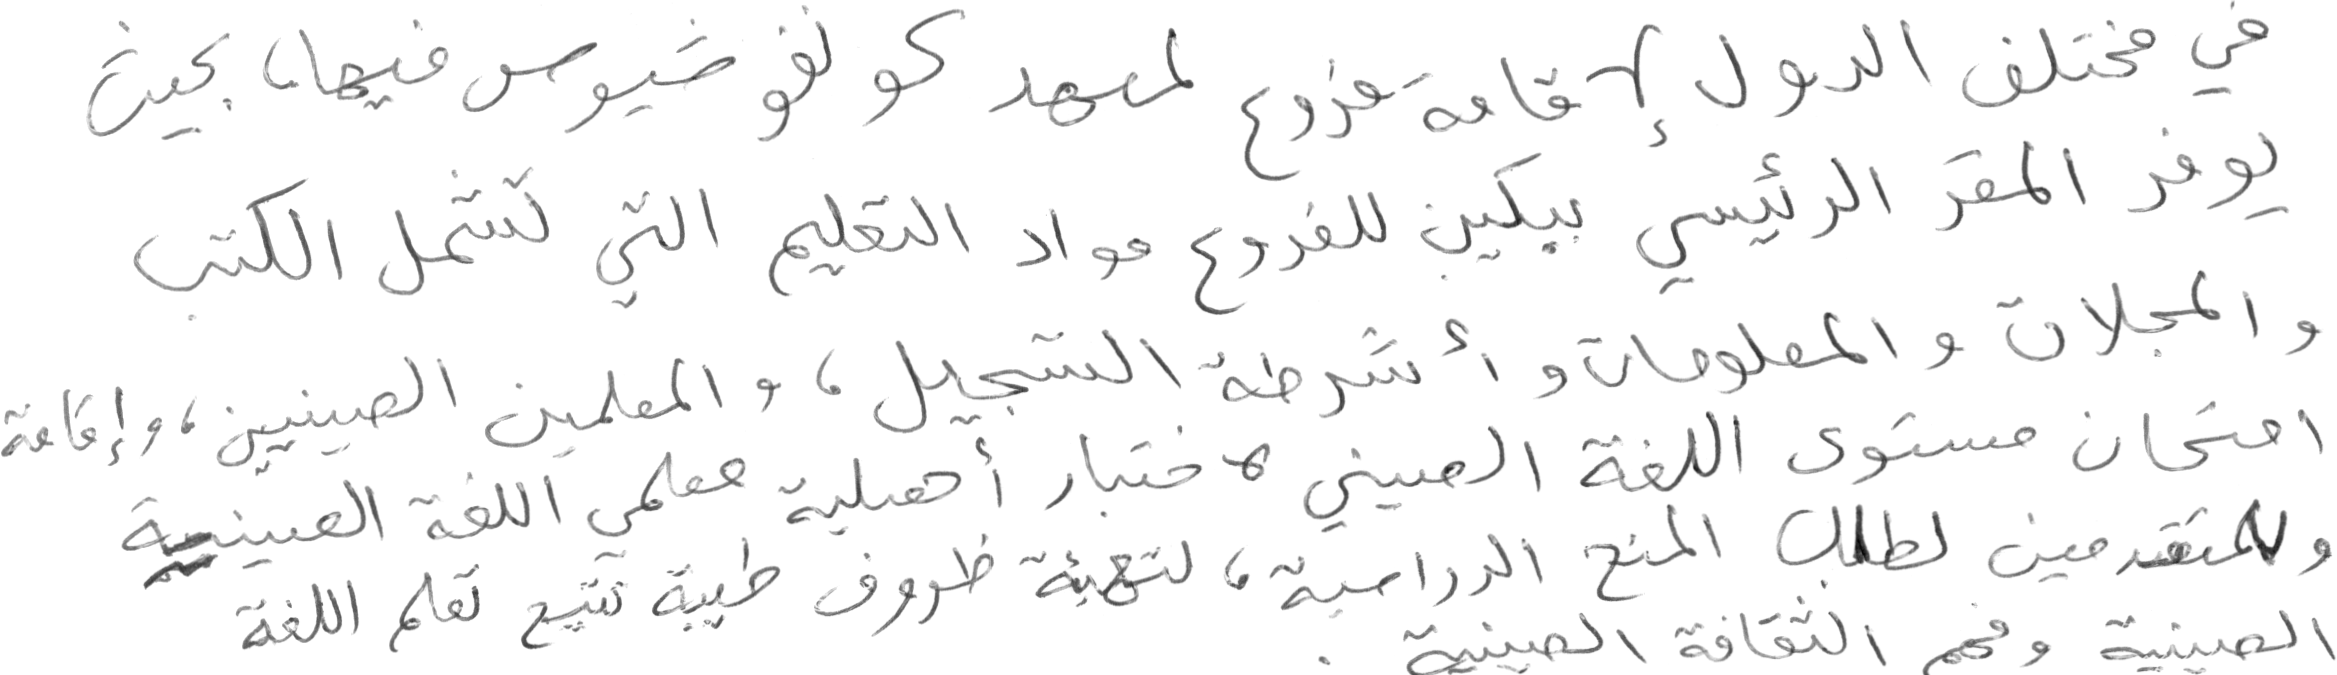 في مختلف الدول لإقامة فروع لمعهد كونفوشيوس فيها، بحيث
يوفر المقر الرئيسي ببكين للفروع مواد التعليم التي تشمل الكتب
والمجلات والمعلومات وأشرطة التسجيل، والمعلمين الصينيين، وإقامة
امتحان مستوى اللغة الصيني لاختبار أهلية معلمى اللغة الصينية
وللمتقدمين لطلب المنح الدراسية، لتهيئة ظروف طيبة تتيح تعلم اللغة
الصينية وفهم الثقافة الصينية.